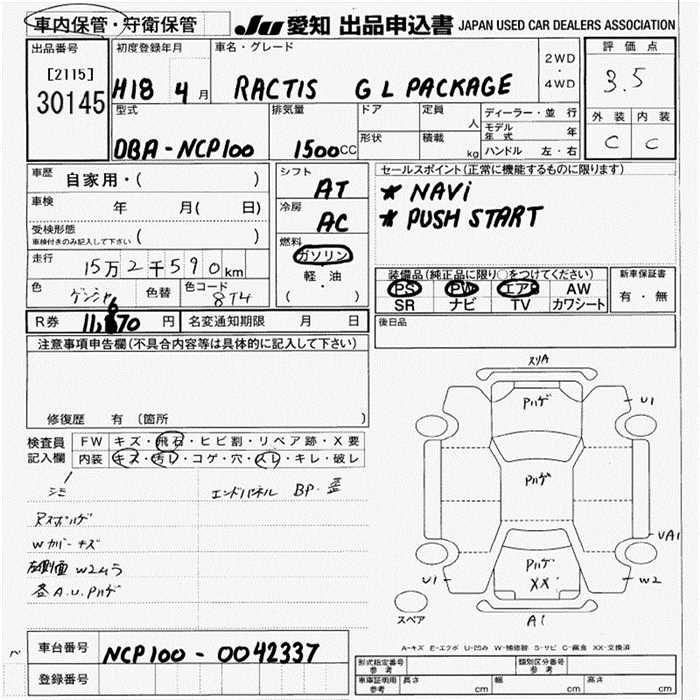 車内保管・守衛保管
JU 愛知 出品申込書 JAPAN USED CAR DEALERS ASSOCIATION
出品番号
[2115]
30145
初度登録年月
H18 4月
車名・グレード
RACTIS G L PACKAGE
2WD
・
4WD
評価点
3.5
外装 内装
C C
型式
DBA-NCP100
排気量
1500CC
ドア
形状
定員
人
積載
kg
ディーラー・並行
モデル年式 年
ハンドル 左・右
車歴 自家用・( )
車検 年 月( 日)
受検形態
車検付きのみ記入して下さい ( )
走行 15万2千590km
色 色替 色コード 8T4
R券 円 名変通知期限 月 日
シフト
AT
冷房
AC
燃料
ガソリン
軽・油
( )
セールスポイント(正常に機能するものに限ります)
* NAVi
* PUSH START
装備品(純正品に限り○をつけてください)
PS PW エアB AW
SR ナビ TV カワシート
新車保証書
有・無
後日品
注意事項申告欄(不具合内容等は具体的に記入して下さい)
修復歴 有 (箇所 )
検査員
記入欄
FW キズ・飛石・ヒビ割・リペア跡・X要
内装 キズ・汚レ・コゲ・穴・スレ・キレ・破レ
シミ
エンドパネル BP・歪
Wカバーキズ
左側面 W2ムラ
各A.U.Pハゲ
スリA
Pハゲ
U1
Pハゲ
UA1
Pハゲ
XX
U1
W2
A1
スペア
A-キズ E-エクボ U-凹み W-補修跡 S-サビ C-腐食 XX-交換済
車台番号 NCP100-0042337
登録番号
形式指定番号
参考
類別区分番号
参考
車庫証明用
参考
長さ cm 幅 cm 高さ cm